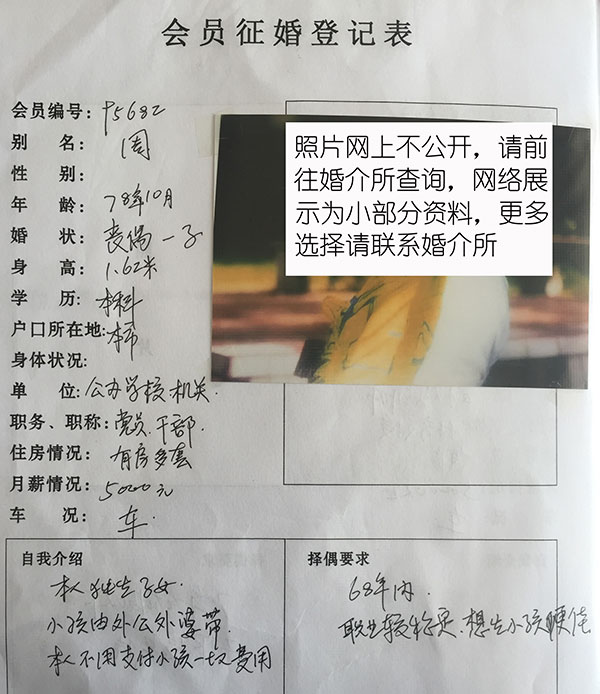 会员征婚登记表
会员编号：95682
别 名：周
性 别：
年 龄：78年10月
婚 状：丧偶一子
身 高：1.62米
学 历：本科
户口所在地：本市
身体状况：
单 位：公办学校.机关.
职务、职称：党员.干部.
住房情况：有房多套
月薪情况：5000元
车 况：车.
照片网上不公开，请前
往婚介所查询，网络展
示为小部分资料，更多
选择请联系婚介所
自我介绍
本人独生子女.
小孩由外公外婆带.
本人不用支付小孩一切费用
择偶要求
68年内.
职业较稳定.想生小孩硬佳